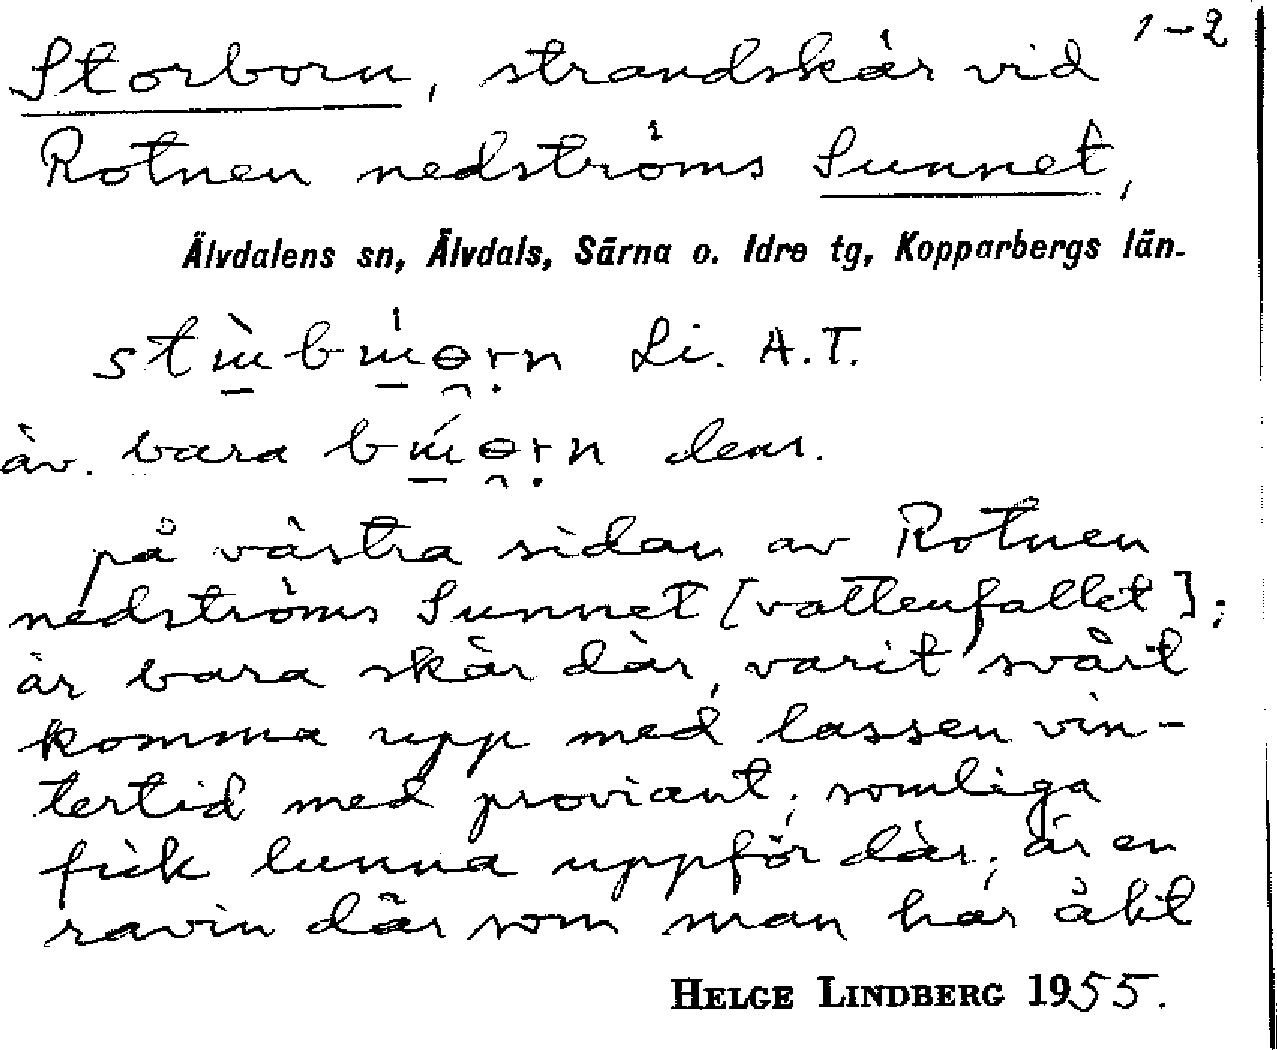 1-2
Storborn, strandskär vid
Rotnen nedströms Sunnet,
Älvdalens sn, Älvdals, Särna o. Idre tg, Kopparbergs län.
Li. A.T.
äv. bara dens.
på västra sidan av Rotnen
nedströms Sunnet [vattenfallet];
är bara skär där, varit svårt
komma upp med lassen vin-
tertid med proviant; somliga
fick lunna uppför där; är en
ravin där som man har åkt
HELGE LINDBERG 1955.